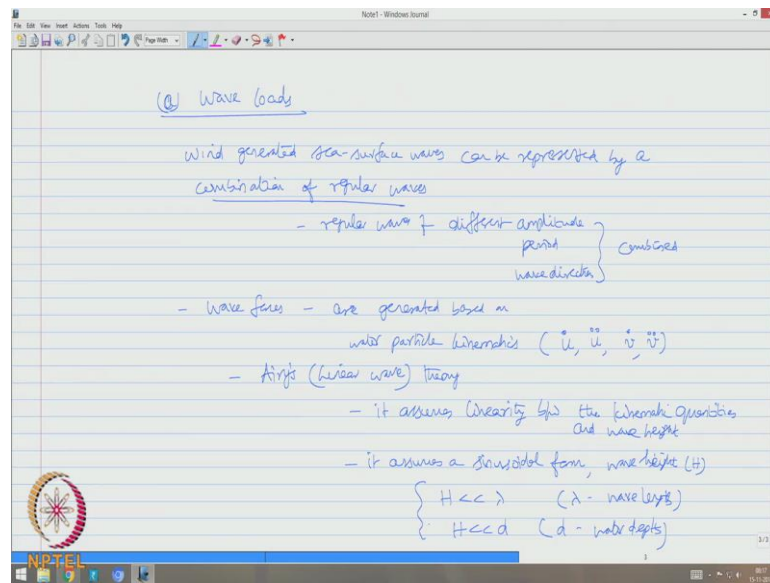 Note1 - Windows Journal
File Edit View Insert Actions Tools Help
Page Width
(a) Wave loads
Wind generated sea-surface waves can be represented by a
combination of regular waves
- regular wave of different amplitude
period
wave direction
combined
- Wave forces - are generated based on
water particle kinematics ( u̇, ü, v̇, v̈ )
- Airy's (Linear wave) theory
- it assumes linearity b/w the kinematic quantities
and wave height
- it assumes a sinusoidal form, wave height (H)
H << λ (λ - wave length)
H << d (d - water depth)
NPTEL
3/3
3